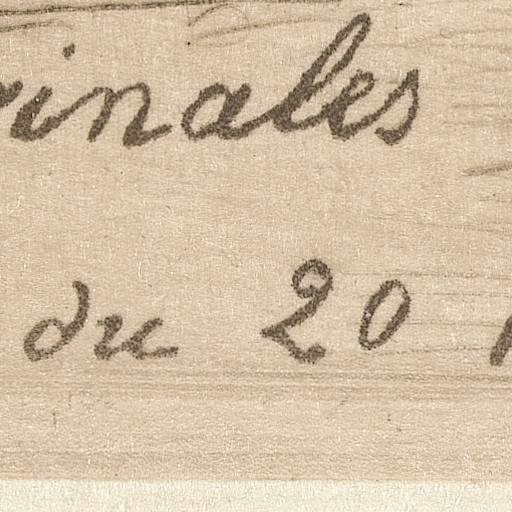 rinales
du 20